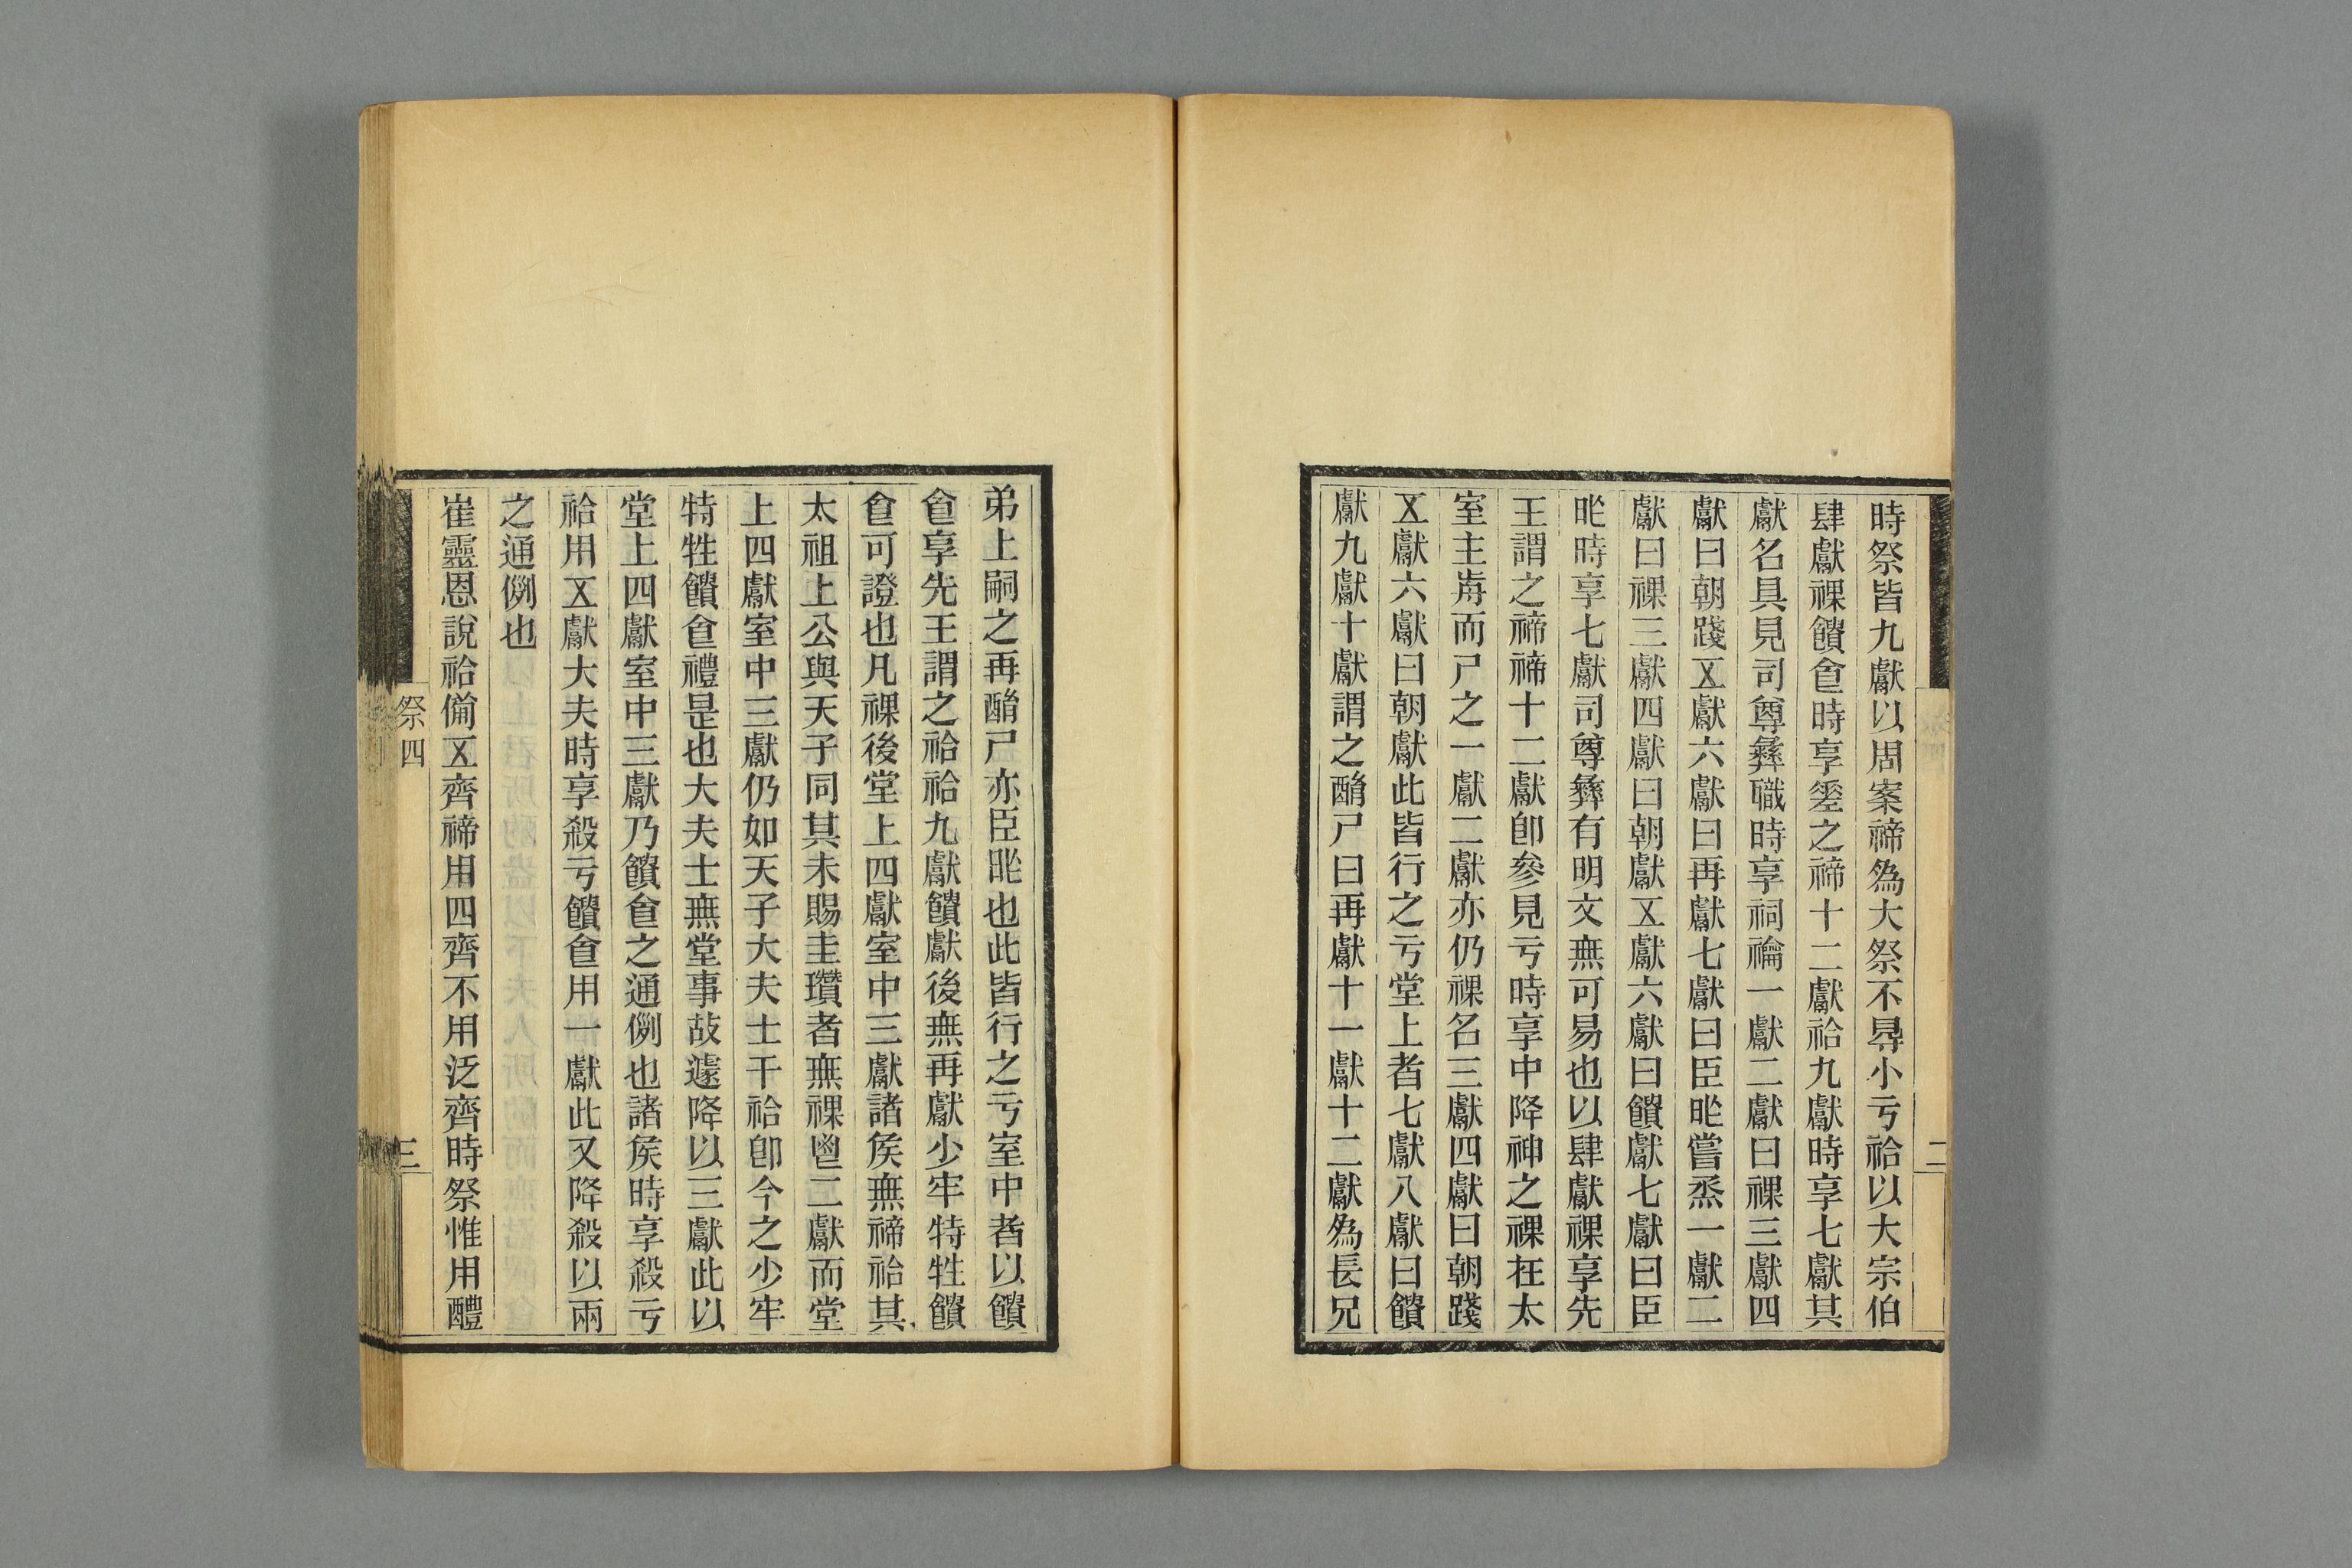 時祭皆九獻以周案禘為大祭不㝵小亏祫以大宗伯
肆獻祼饋𠊊時享壆之禘十二獻祫九獻時享七獻其
獻名具見司尊彝職時享祠禴一獻二獻曰祼三獻四
獻曰朝踐㐅獻六獻曰再獻七獻曰臣昨嘗烝一獻二
獻曰祼三獻四獻曰朝獻㐅獻六獻曰饋獻七獻曰臣
昨時享七獻司尊彝有明文無可易也以肆獻祼享先
王謂之禘禘十二獻卽參見亏時享中降神之祼在太
室主歬而尸之一獻二獻亦仍祼名三獻四獻曰朝踐
㐅獻六獻曰朝獻此皆行之亏堂上者七獻八獻曰饋
獻九獻十獻謂之酳尸曰再獻十一獻十二獻為長兄
弟上嗣之再酳尸亦臣昨也此皆行之亏室中者以饋
𠊊享先王謂之祫祫九獻饋獻後無再獻少牢特牲饋
𠊊可證也凡祼後堂上四獻室中三獻諸矦無禘祫其
太祖上公與天子同其未賜圭瓚者無祼鬯二獻而堂
上四獻室中三獻仍如天子大夫士干祫卽今之少牢
特牲饋𠊊禮是也大夫士無堂事故遽降以三獻此以
堂上四獻室中三獻乃饋𠊊之通例也諸矦時享殺亏
祫用㐅獻大夫時享殺亏饋𠊊用一獻此又降殺以兩
之通例也
崔靈恩說祫備㐅齊禘用四齊不用泛齊時祭惟用醴
祭四
三
二